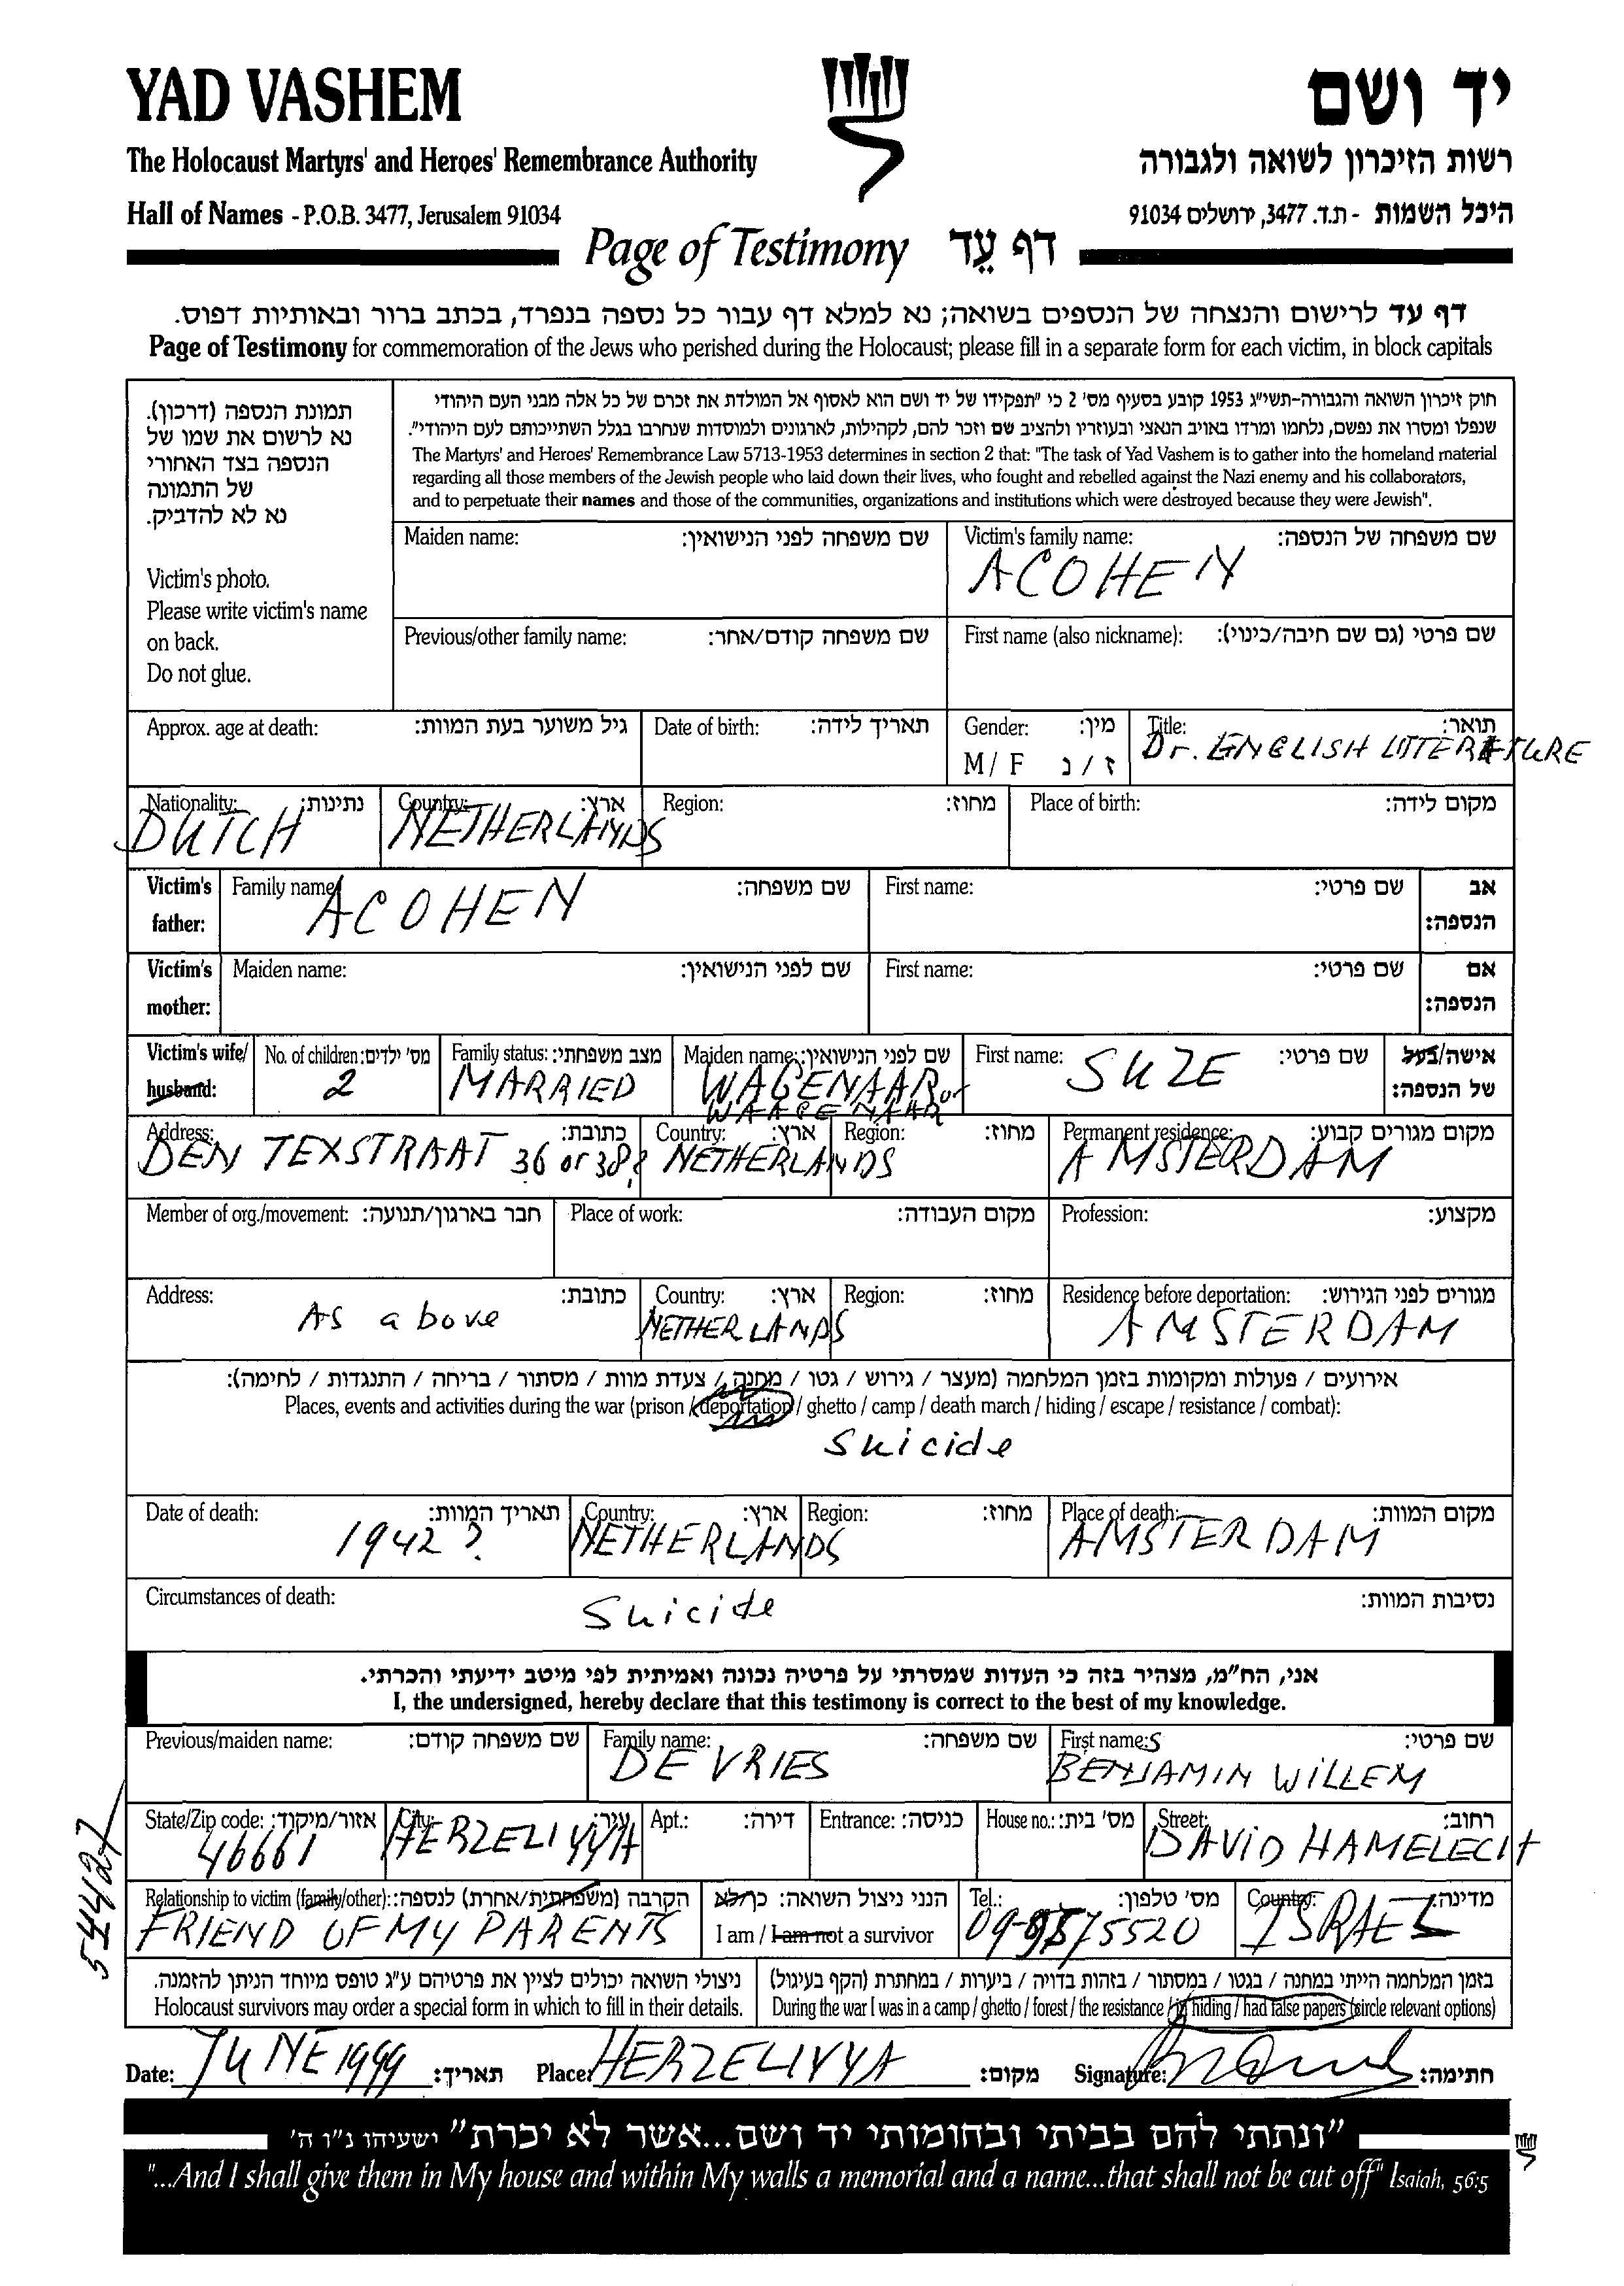 YAD VASHEM
יד ושם
The Holocaust Martyrs' and Heroes' Remembrance Authority
רשות הזיכרון לשואה ולגבורה
Hall of Names - P.O.B. 3477, Jerusalem 91034
היכל השמות - ת.ד. 3477, ירושלים 91034
Page of Testimony דף עֵד
דף עד לרישום והנצחה של הנספים בשואה; נא למלא דף עבור כל נספה בנפרד, בכתב ברור ובאותיות דפוס.
Page of Testimony for commemoration of the Jews who perished during the Holocaust; please fill in a separate form for each victim, in block capitals
תמונת הנספה (דרכון).
נא לרשום את שמו של
הנספה בצד האחורי
של התמונה
נא לא להדביק.
Victim's photo.
Please write victim's name
on back.
Do not glue.
חוק זיכרון השואה והגבורה-תשי"ג 1953 קובע בסעיף מס' 2 כי "תפקידו של יד ושם הוא לאסוף אל המולדת את זכרם של כל אלה מבני העם היהודי
שנפלו ומסרו את נפשם, נלחמו ומרדו באויב הנאצי ובעוזריו ולהציב שם וזכר להם, לקהילות, לארגונים ולמוסדות שנחרבו בגלל השתייכותם לעם היהודי".
The Martyrs' and Heroes' Remembrance Law 5713-1953 determines in section 2 that: "The task of Yad Vashem is to gather into the homeland material
regarding all those members of the Jewish people who laid down their lives, who fought and rebelled against the Nazi enemy and his collaborators,
and to perpetuate their names and those of the communities, organizations and institutions which were destroyed because they were Jewish".
Maiden name: שם משפחה לפני הנישואין:
Victim's family name: שם משפחה של הנספה:
ACOHEN
Previous/other family name: שם משפחה קודם/אחר:
First name (also nickname): שם פרטי (גם שם חיבה/כינוי):
Approx. age at death: גיל משוער בעת המוות:
Date of birth: תאריך לידה:
Gender: מין:
M / F ז / נ
Title: תואר:
Dr. ENGLISH LITERATURE
Nationality: נתינות:
DUTCH
Country: ארץ:
NETHERLANDS
Region: מחוז:
Place of birth: מקום לידה:
Victim's father:
Family name: שם משפחה:
ACOHEN
First name: שם פרטי:
אב הנספה:
Victim's mother:
Maiden name: שם לפני הנישואין:
First name: שם פרטי:
אם הנספה:
Victim's wife/ husband:
No. of children: מס' ילדים:
2
Family status: מצב משפחתי:
MARRIED
Maiden name: שם לפני הנישואין:
WAGENAAR or
First name: שם פרטי:
SUZE
אישה/בעל של הנספה:
Address: כתובת:
DEN TEXSTRAAT 36 or 38?
Country: ארץ:
NETHERLANDS
Region: מחוז:
Permanent residence: מקום מגורים קבוע:
AMSTERDAM
Member of org./movement: חבר בארגון/תנועה:
Place of work: מקום העבודה:
Profession: מקצוע:
Address: כתובת:
As above
Country: ארץ:
NETHERLANDS
Region: מחוז:
Residence before deportation: מגורים לפני הגירוש:
AMSTERDAM
אירועים / פעולות ומקומות בזמן המלחמה (מעצר / גירוש / גטו / מחנה / צעדת מוות / מסתור / בריחה / התנגדות / לחימה):
Places, events and activities during the war (prison / deportation / ghetto / camp / death march / hiding / escape / resistance / combat):
Suicide
Date of death: תאריך המוות:
1942 ?
Country: ארץ:
NETHERLANDS
Region: מחוז:
Place of death: מקום המוות:
AMSTERDAM
Circumstances of death: נסיבות המוות:
Suicide
אני, הח"מ, מצהיר בזה כי העדות שמסרתי על פרטיה נכונה ואמיתית לפי מיטב ידיעתי והכרתי.
I, the undersigned, hereby declare that this testimony is correct to the best of my knowledge.
Previous/maiden name: שם משפחה קודם:
Family name: שם משפחה:
DE VRIES
First name:s שם פרטי:
BENJAMIN WILLEM
State/Zip code: אזור/מיקוד:
46661
City: עיר:
HERZELIYYA
Apt.: דירה:
Entrance: כניסה:
House no.: מס' בית:
Street: רחוב:
DAVID HAMELECH
544427
Relationship to victim (family/other): הקרבה (משפחתית/אחרת) לנספה:
FRIEND OF MY PARENTS
הנני ניצול השואה: כן/לא
I am / I am not a survivor
Tel.: מס' טלפון:
09-9575520
Country: מדינה:
ISRAEL
ניצולי השואה יכולים לציין את פרטיהם ע"ג טופס מיוחד הניתן להזמנה.
Holocaust survivors may order a special form in which to fill in their details.
בזמן המלחמה הייתי במחנה / בגטו / במסתור / בזהות בדויה / ביערות / במחתרת (הקף בעיגול)
During the war I was in a camp / ghetto / forest / the resistance / in hiding / had false papers (circle relevant options)
Date: JUNE 1999 תאריך: Place: HERZELIYYA מקום: Signature: חתימה:
"ונתתי להם בביתי ובחומותי יד ושם...אשר לא יכרת" ישעיהו נ"ו ה'
"...And I shall give them in My house and within My walls a memorial and a name...that shall not be cut off" Isaiah, 56:5